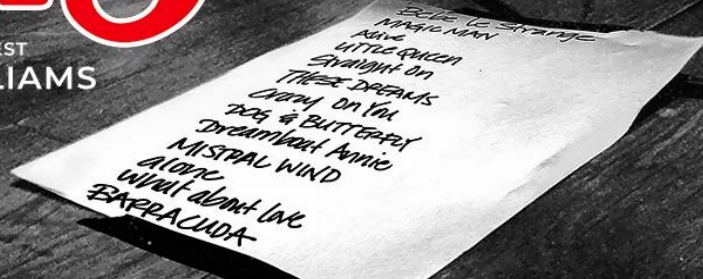 EST
LIAMS
Bebe le Strange
MAGIC MAN
Alive
LITTLE QUEEN
Straight On
THESE DREAMS
Crazy on You
DOG & BUTTERFLY
Dreamboat Annie
MISTRAL WIND
alone
what about love
BARRACUDA